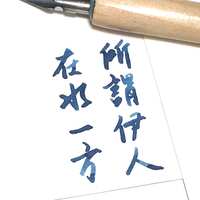 所謂伊人
在水一方